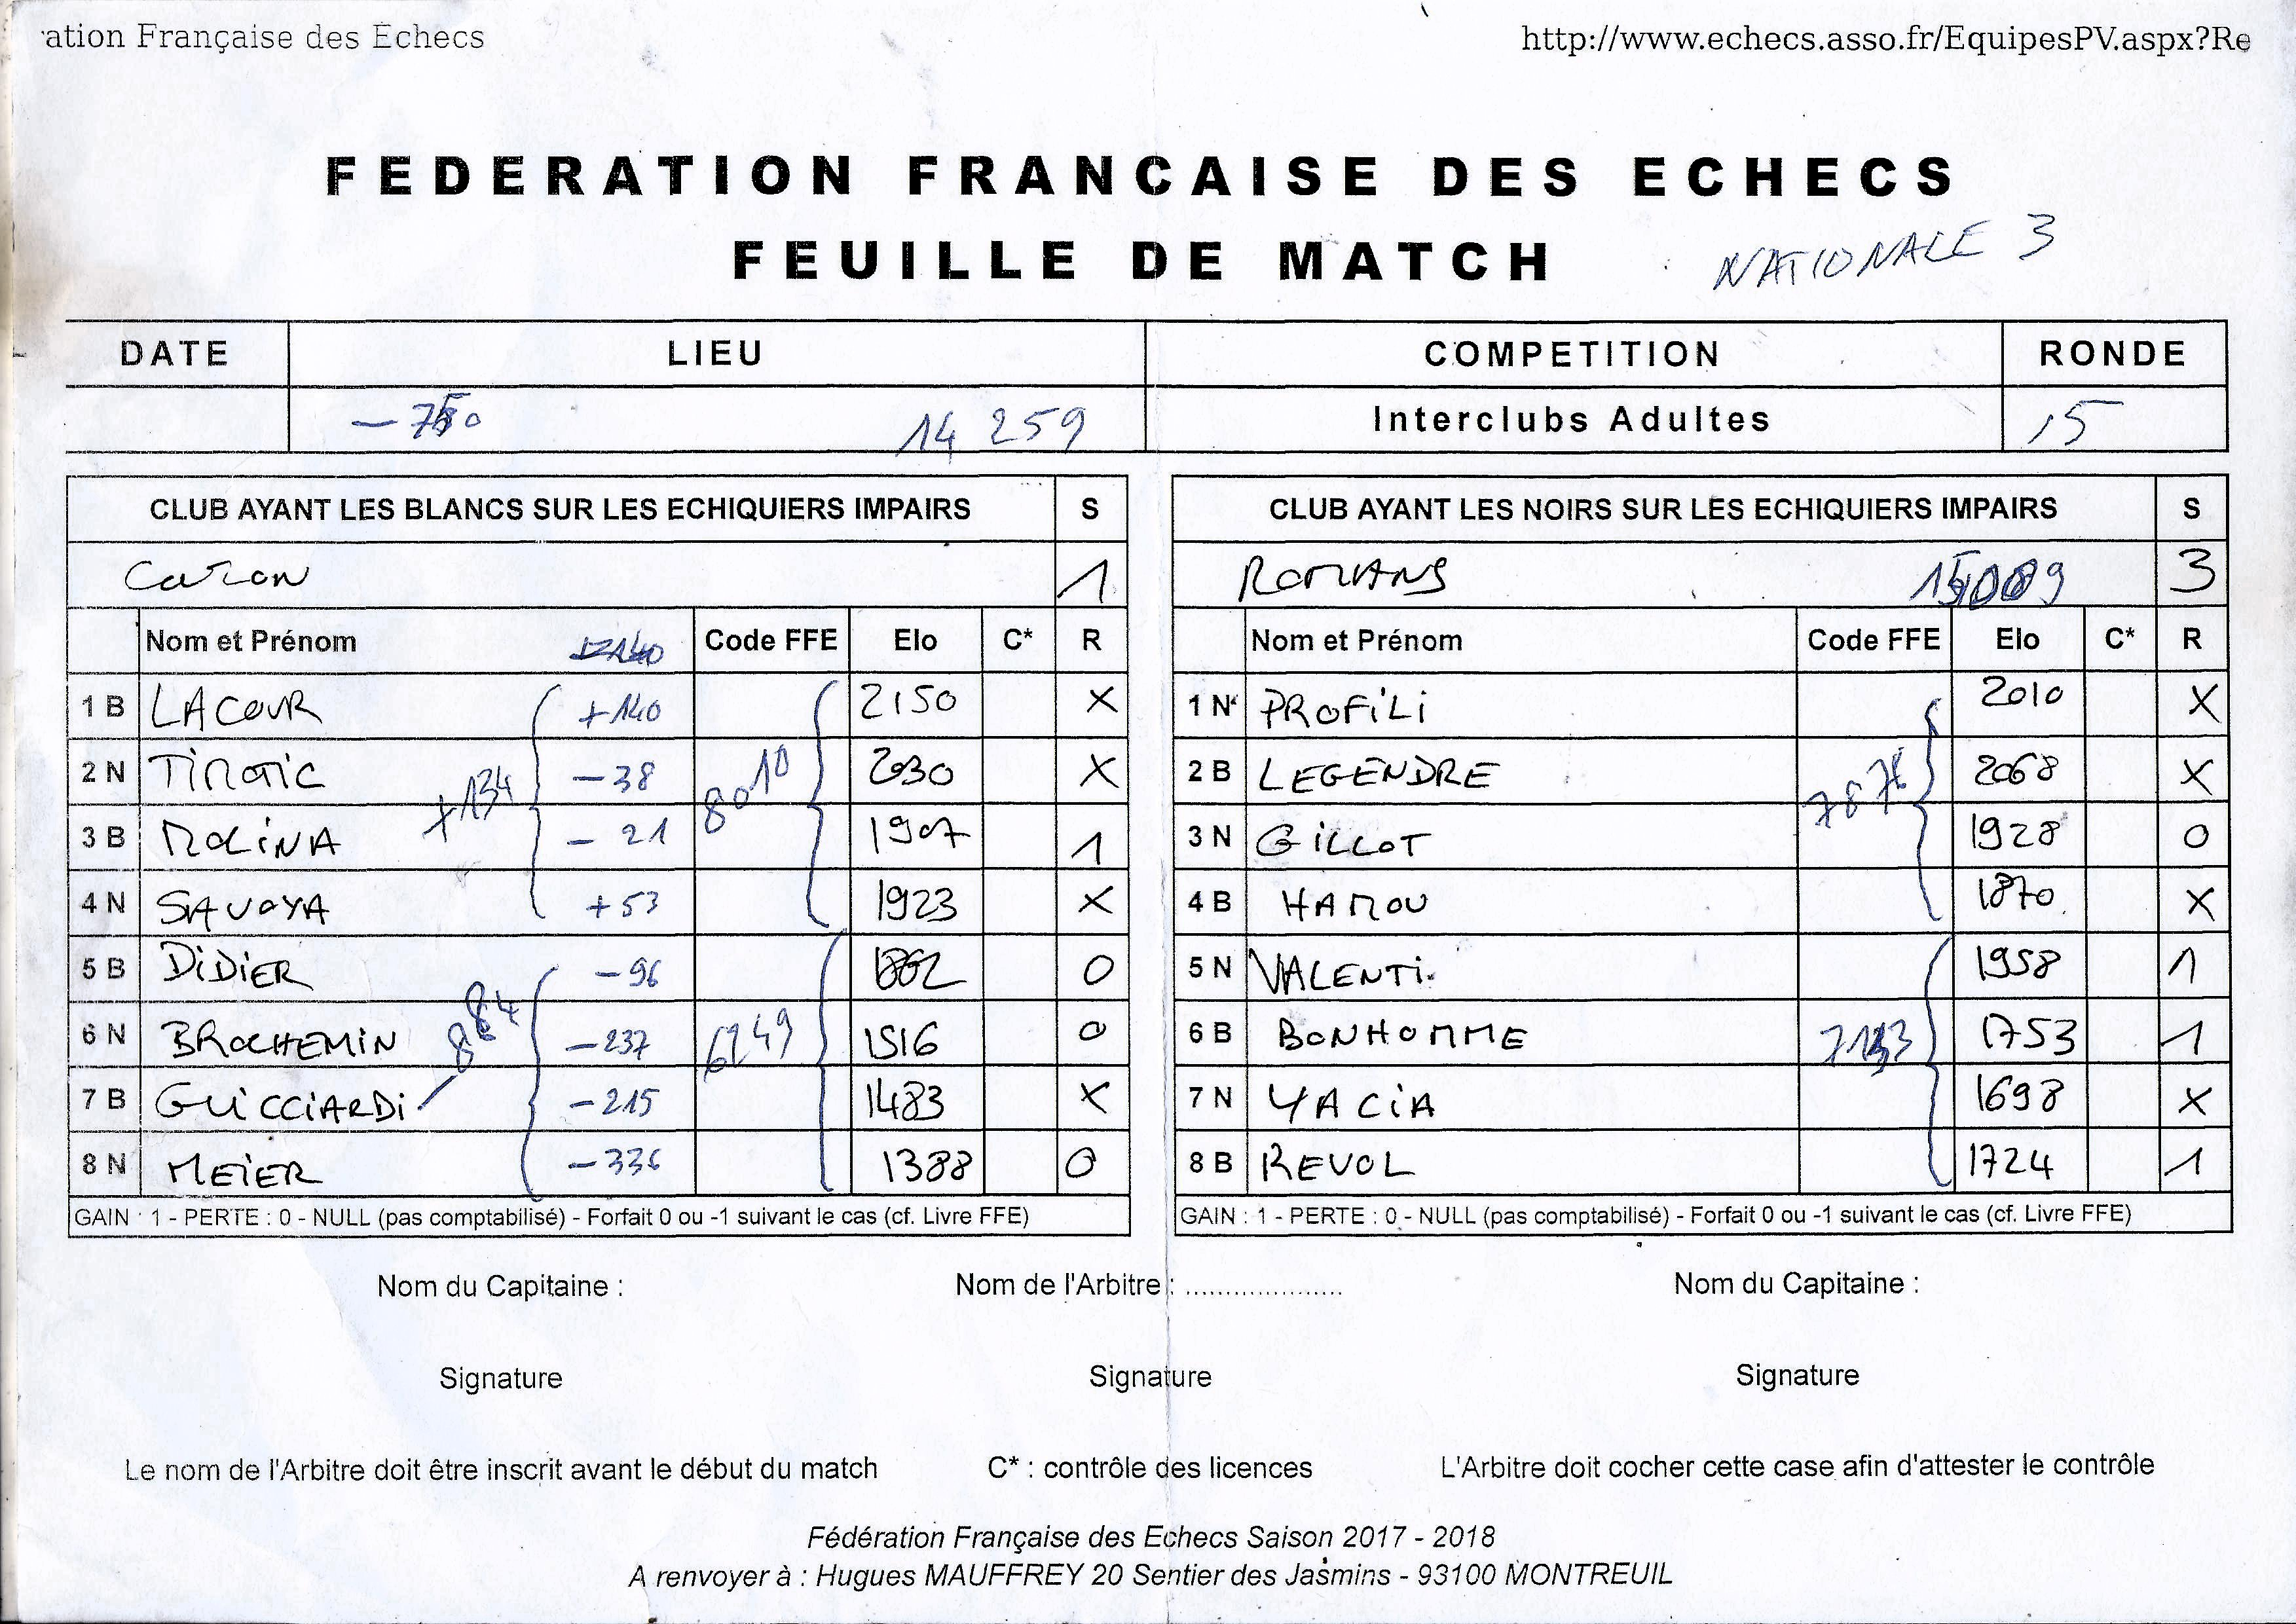 ation Française des Echecs
http://www.echecs.asso.fr/EquipesPV.aspx?Re
FEDERATION FRANCAISE DES ECHECS
FEUILLE DE MATCH
NATIONALE 3
DATE LIEU COMPETITION RONDE
14 259 Interclubs Adultes 5
CLUB AYANT LES BLANCS SUR LES ECHIQUIERS IMPAIRS S
1
Nom et Prénom Code FFE Elo C* R
1 B LACOUR +140 2150 X
2 N TIMOTIC -38 2030 X
+134 8010
3 B MOLINA - 21 1907 1
4 N SAVOYA +53 1923 X
5 B DIDIER -96 1862 0
6 N BROCHEMIN -237 1516 0
884 6249
7 B GUICCIARDI -215 1483 X
8 N MEIER -336 1388 0
GAIN : 1 - PERTE : 0 - NULL (pas comptabilisé) - Forfait 0 ou -1 suivant le cas (cf. Livre FFE)
CLUB AYANT LES NOIRS SUR LES ECHIQUIERS IMPAIRS S
ROMANS 3
Nom et Prénom Code FFE Elo C* R
1 N PROFILI 2010 X
2 B LEGENDRE 2068 X
7876
3 N GILLOT 1928 0
4 B HAMOU 1870 X
5 N VALENTI 1958 1
6 B BONHOMME 1753 1
7133
7 N YACIA 1698 X
8 B REVOL 1724 1
GAIN : 1 - PERTE : 0 - NULL (pas comptabilisé) - Forfait 0 ou -1 suivant le cas (cf. Livre FFE)
Nom du Capitaine : Nom de l'Arbitre : .................... Nom du Capitaine :
Signature Signature Signature
Le nom de l'Arbitre doit être inscrit avant le début du match C* : contrôle des licences L'Arbitre doit cocher cette case afin d'attester le contrôle
Fédération Française des Echecs Saison 2017 - 2018
A renvoyer à : Hugues MAUFFREY 20 Sentier des Jasmins - 93100 MONTREUIL